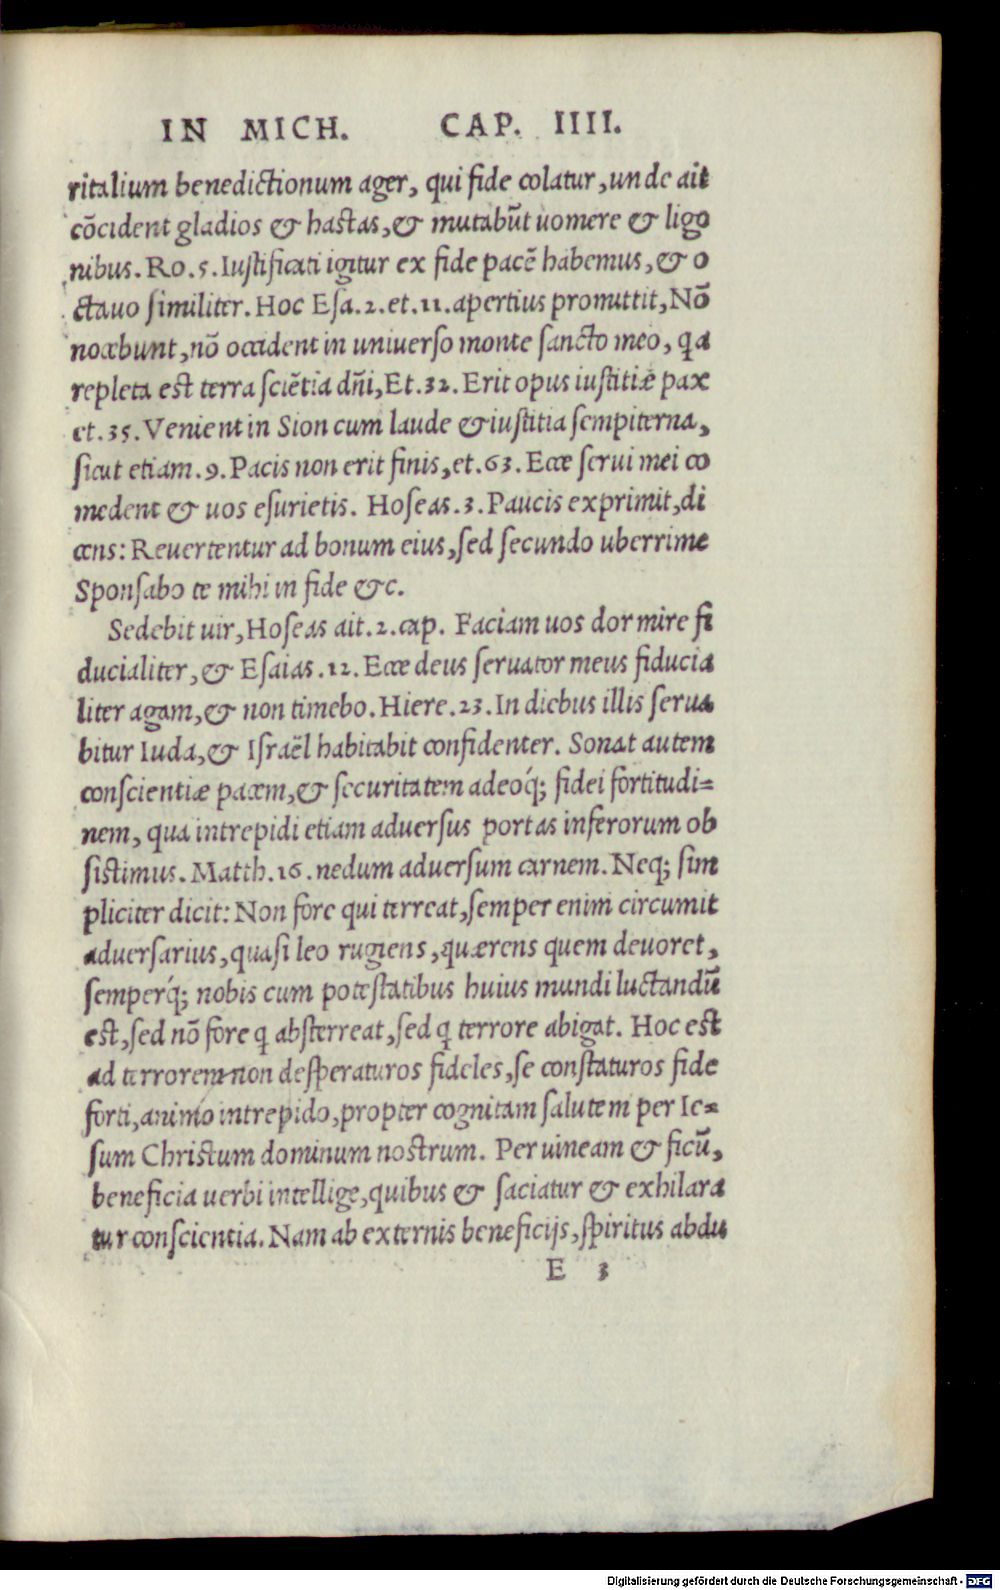 IN MICH. CAP. IIII.
ritalium benedictionum ager, qui fide colatur, unde ait
cõcident gladios & hastas, & mutabũt uomere & ligo
nibus. Ro. 5. Iustificati igitur ex fide pacẽ habemus, & o
ctauo similiter. Hoc Esa. 2. et. 11. apertius promittit, Nõ
nocebunt, nõ occident in uniuerso monte sancto meo, qa
repleta est terra sciẽtia dñi, Et. 32. Erit opus iustitiæ pax
et. 35. Venient in Sion cum laude & iustitia sempiterna,
sicut etiam. 9. Pacis non erit finis, et. 63. Ecce serui mei co
medent & uos esurietis. Hoseas. 3. Paucis exprimit, di
cens: Reuertentur ad bonum eius, sed secundo uberrime
Sponsabo te mihi in fide &c.
Sedebit uir, Hoseas ait. 2. cap. Faciam uos dormire fi
ducialiter, & Esaias. 12. Ecce deus seruator meus fiducia
liter agam, & non timebo. Hiere. 23. In diebus illis serua
bitur Iuda, & Israël habitabit confidenter. Sonat autem
conscientiæ pacem, & securitatem adeoq́; fidei fortitudi=
nem, qua intrepidi etiam aduersus portas inferorum ob
sistimus. Matth. 16. nedum aduersum carnem. Neq; sim
pliciter dicit: Non fore qui terreat, semper enim circumit
aduersarius, quasi leo rugiens, quærens quem deuoret,
semperq́; nobis cum potestatibus huius mundi luctandũ
est, sed nõ fore q absterreat, sed q terrore abigat. Hoc est
ad terrorem non desperaturos fideles, se constaturos fide
forti, animo intrepido, propter cognitam salutem per Ie=
sum Christum dominum nostrum. Per uineam & ficũ,
beneficia uerbi intellige, quibus & saciatur & exhilara
tur conscientia. Nam ab externis beneficijs, spiritus abdu
E 3
Digitalisierung gefördert durch die Deutsche Forschungsgemeinschaft - DFG